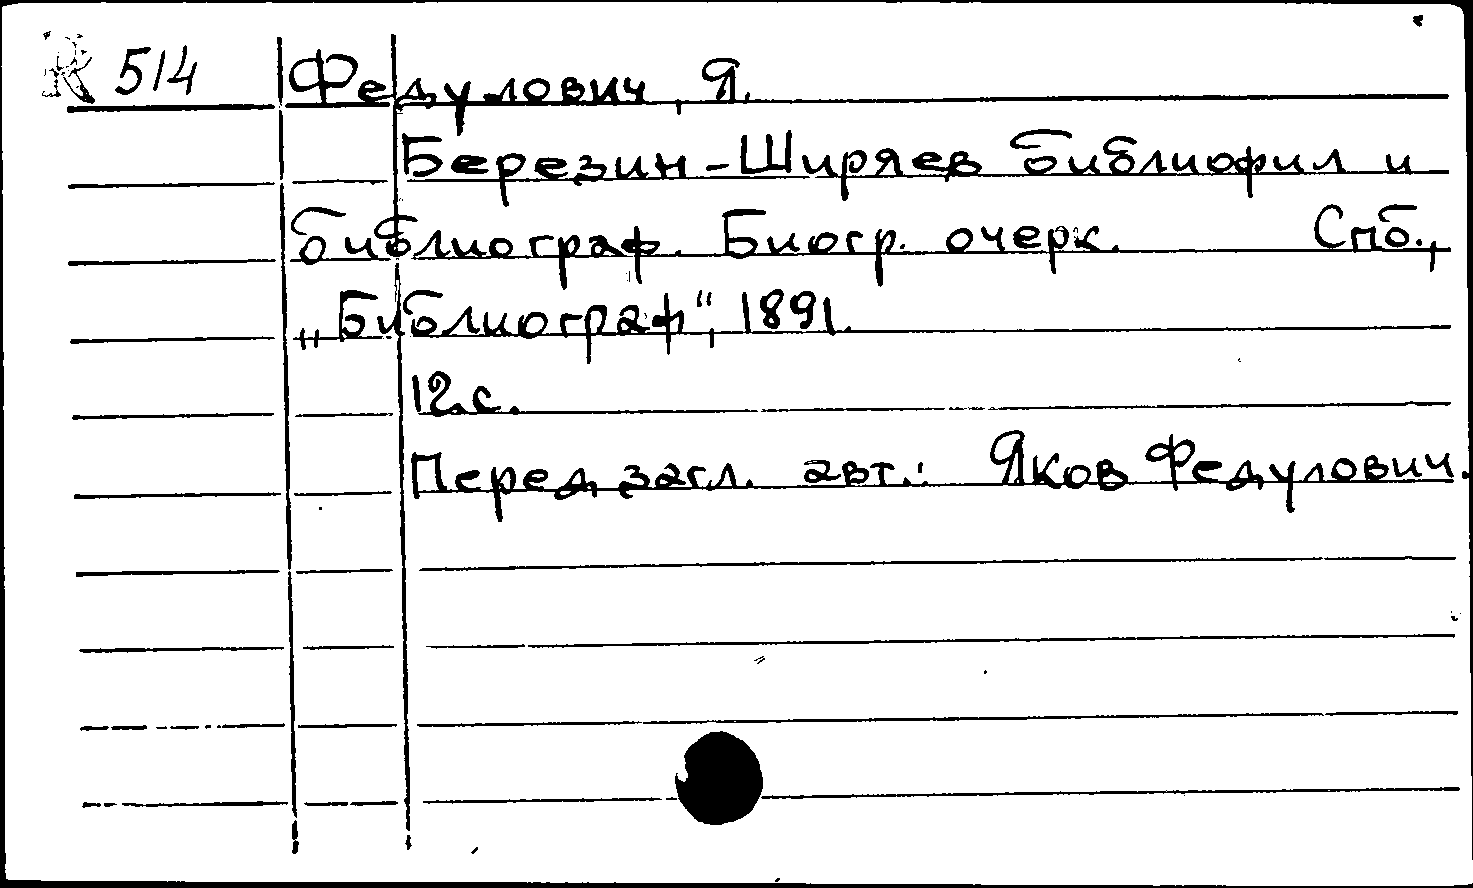 R 514 Федулович, Я.
Березин-Ширяев библиофил и
библиограф. Биогр. очерк. Спб.,
„Библиограф“, 1891.
12.с.
Перед загл. авт.: Яков Федулович.